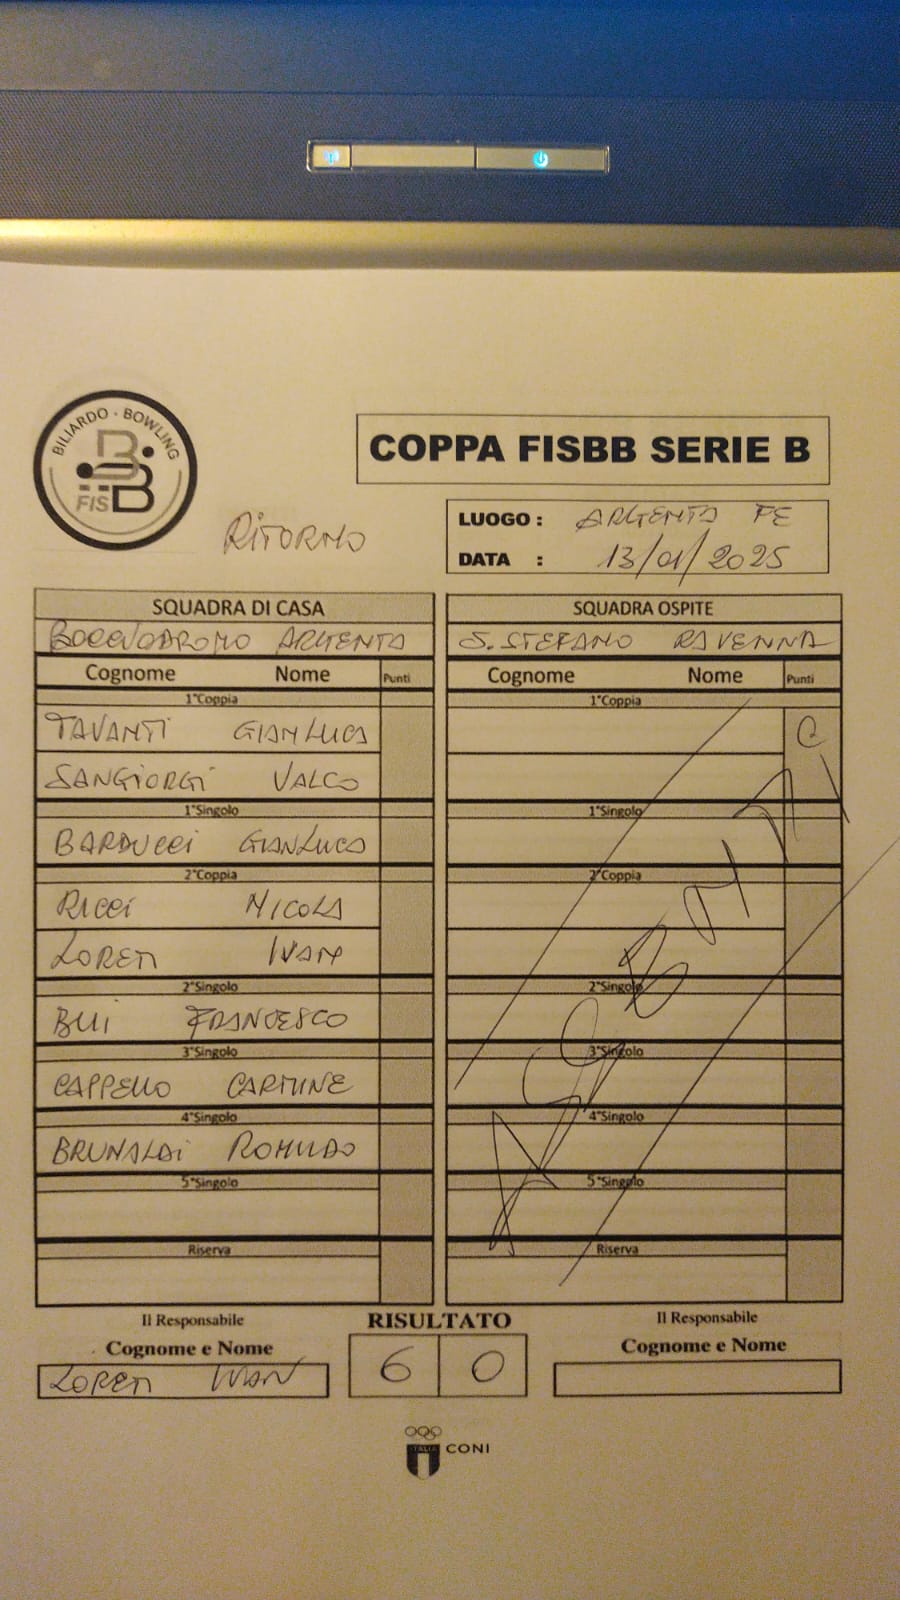 BILIARDO - BOWLING
FISBB
COPPA FISBB SERIE B
RITORNO
LUOGO : ARGENTA FE
DATA : 13/01/2025
SQUADRA DI CASA
BOCCIODROMO ARGENTA
Cognome Nome Punti
1°Coppia
TAVANTI GIANLUCA
SANGIORGI VALCO
1°Singolo
BARDUCCI GIANLUCA
2°Coppia
RICCI NICOLA
LORETI IVAN
2°Singolo
BUI FRANCESCO
3°Singolo
CAPPELLO CARMINE
4°Singolo
BRUNALDI ROMUALDO
5°Singolo
Riserva
Il Responsabile
Cognome e Nome
LORETI IVAN
SQUADRA OSPITE
S. STEFANO RAVENNA
Cognome Nome Punti
1°Coppia
1°Singolo
2°Coppia
2°Singolo
3°Singolo
4°Singolo
5°Singolo
Riserva
ASSENTI
Il Responsabile
Cognome e Nome
RISULTATO
6 0
ITALIA
CONI